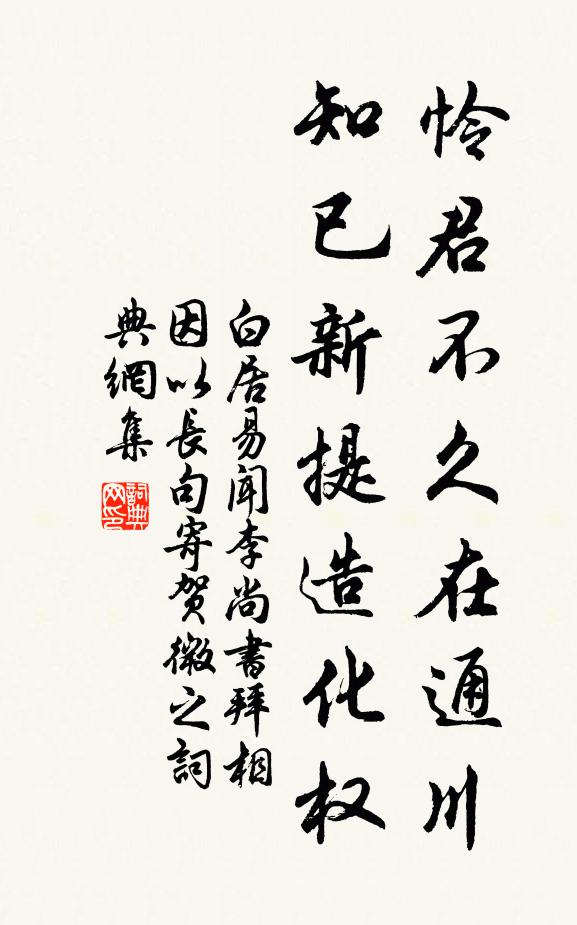 怜君不久在通川
知已新提造化权
白居易闻李尚書拜相
因以長句寄贺微之詞
典網集
詞典网印